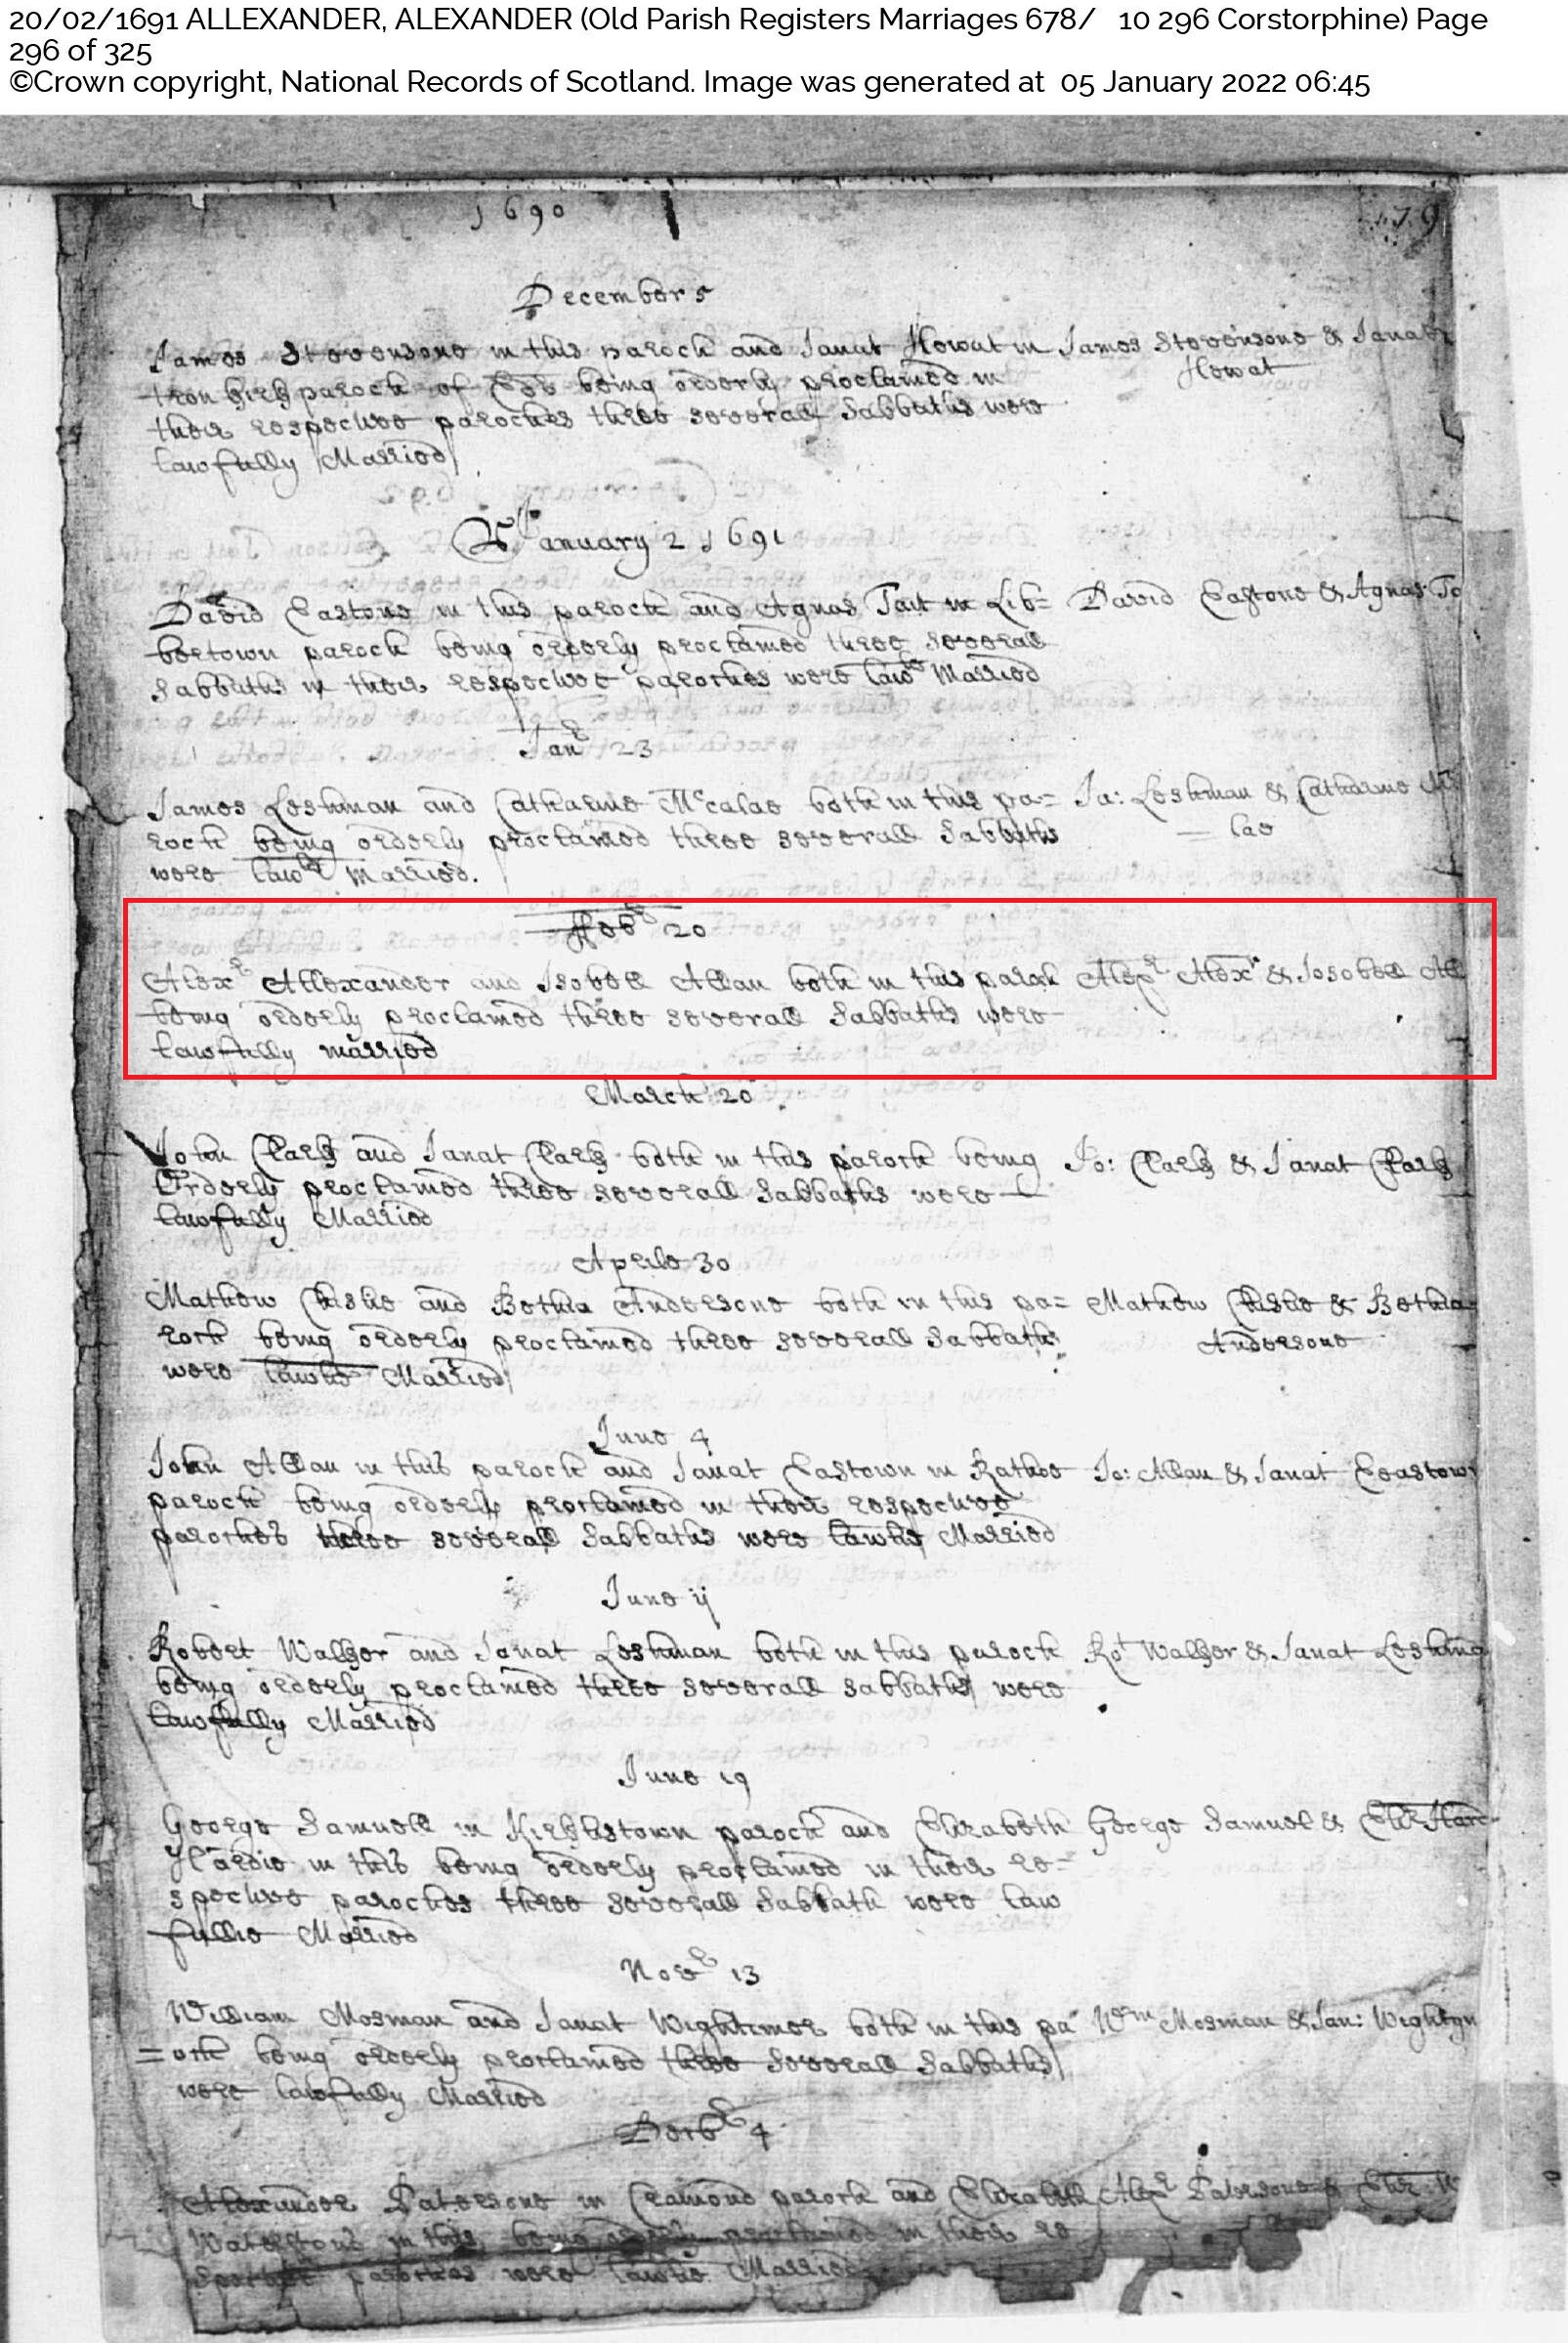 20/02/1691 ALLEXANDER, ALEXANDER (Old Parish Registers Marriages 678/ 10 296 Corstorphine) Page
296 of 325
©Crown copyright, National Records of Scotland. Image was generated at 05 January 2022 06:45
1690
179
December 5
James Stevensone in this paroch and Janat Howat in James Stevensone & Janat
Howat
parock of being orderly proclamed in
their respective paroches three severall Sabbaths were
lawfully Married
January 2 1691
David Eastone in this parock and Agnas Tait in Lib= David Eastone & Agnas Ta
bertown parock being orderly proclamed three severall
Sabbaths in their respective paroches were lawlie Married
Janr 23
James Leshman and Catharine Mccalae both in this pa= Ja: Leshman & Catharine Mc
= lae
rock being orderly proclamed three severall Sabbaths
were lawlie Married.
Febr 20
Alexr Allexander and Isobell Allan both in this paroch Alexr Alexr & Isobell All
being orderly proclamed three severall Sabbaths were
lawfully married
March 20
John Clark and Janat Clark both in this parock being Jo: Clark & Janat Clark
Orderly proclamed three severall Sabbaths were
lawfully Married
Aprile 30
Mathew and Bethia Andersone both in this pa= Mathew & Bethia
rock being orderly proclamed three severall Sabbaths Andersone
were lawlie Married
June 4
John Allan in this parock and Janat Eastown in Rathoe Jo: Allan & Janat Eeastown
parock being orderly proclamed in their respective
paroches three severall Sabbaths were lawlie Married
June ij
Robert Walker and Janat Leshman both in this parock Rot Walker & Janat Leshman
being orderly proclamed three severall Sabbaths were
lawfully Married
June 19
George Samuell in Kirklistown parock and Elizabeth George Samuel & Eliz: Hard
Hardie in this being orderly proclamed in their re=
spective paroches three severall Sabbath were law
fullie Married
Novr 13
William Mosman and Janat both in this pa Wm Mosman & Jan:
=ock being orderly proclamed three severall Sabbaths
were lawfully Married
Decbr 4
Alexander Patersone in Cramond parock and Elizabeth Alexr Patersone & Eliz: W
Waterstone in this being orderly proclamed in their re
paroches were lawlie Married